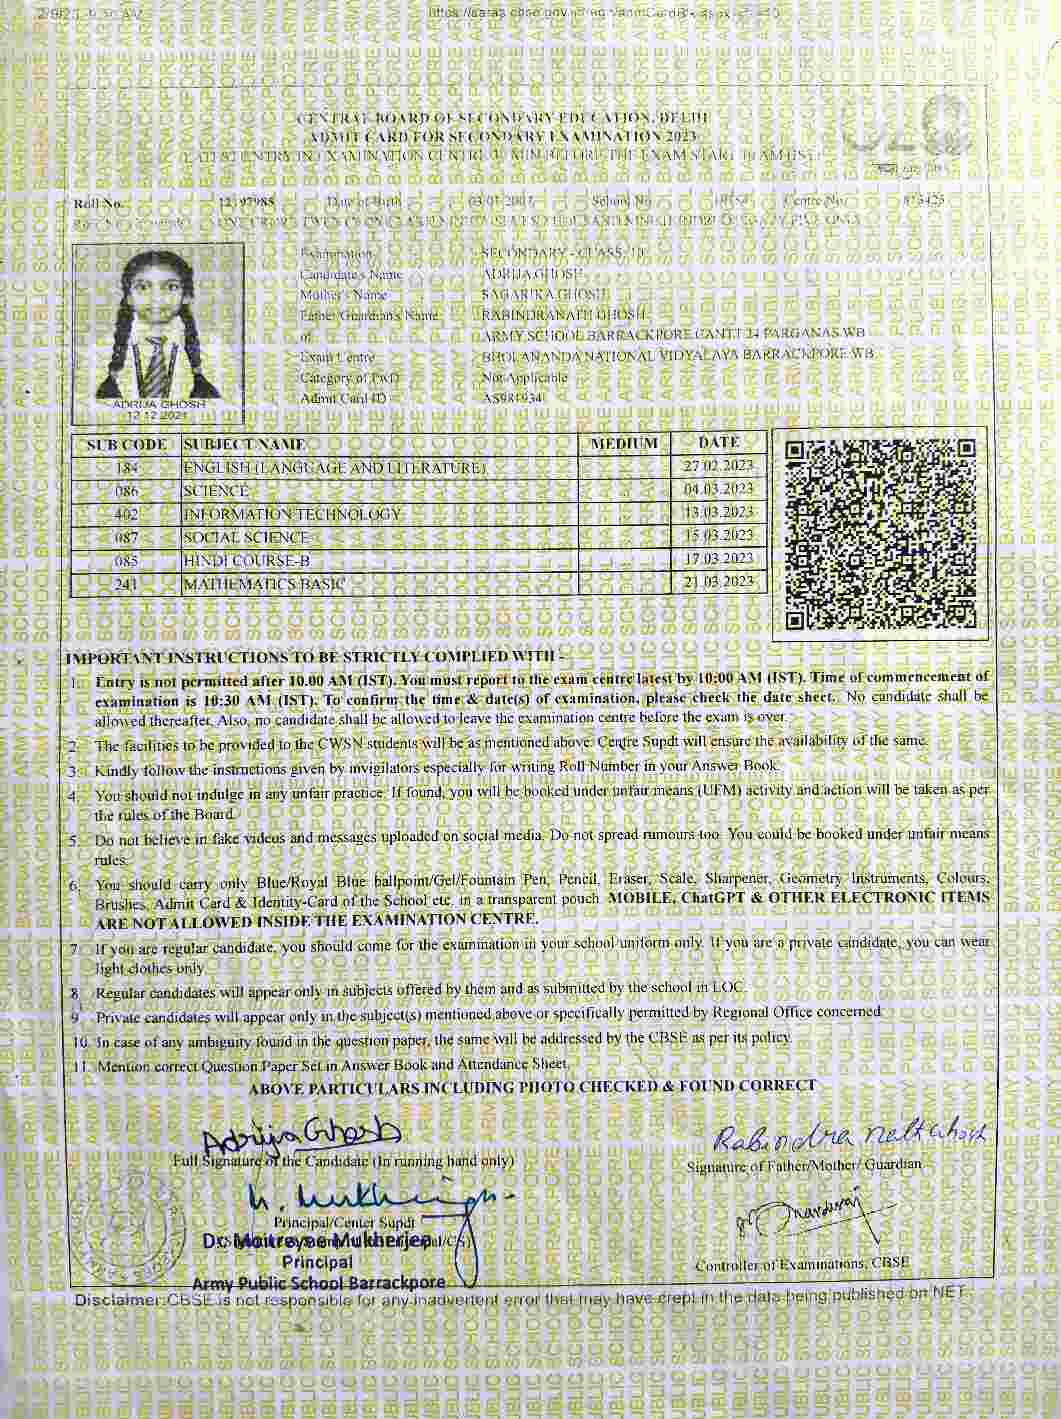 CENTRAL BOARD OF SECONDARY EDUCATION, DELHI
ADMIT CARD FOR SECONDARY EXAMINATION 2023
Roll No. 12197988 Date of Birth School No. Centre No. 813425
Examination SECONDARY - CLASS 10
Candidate's Name ADRIJA GHOSH
Mother's Name SAGARIKA GHOSH
Father/Guardian's Name RABINDRANATH GHOSH
of ARMY SCHOOL BARRACKPORE CANTT 24 PARGANAS WB
Exam Centre BHOLANANDA NATIONAL VIDYALAYA BARRACKPORE WB
Category of PwD Not Applicable
Admit Card ID AS981934
ADRIJA GHOSH
12.12.2021
SUB CODE SUBJECT NAME MEDIUM DATE
184 ENGLISH (LANGUAGE AND LITERATURE) 27.02.2023
086 SCIENCE 04.03.2023
402 INFORMATION TECHNOLOGY 13.03.2023
087 SOCIAL SCIENCE 15.03.2023
085 HINDI COURSE-B 17.03.2023
241 MATHEMATICS BASIC 21.03.2023
IMPORTANT INSTRUCTIONS TO BE STRICTLY COMPLIED WITH -
1. Entry is not permitted after 10.00 AM (IST). You must report to the exam centre latest by 10:00 AM (IST). Time of commencement of
examination is 10:30 AM (IST). To confirm the time & date(s) of examination, please check the date sheet. No candidate shall be
allowed thereafter. Also, no candidate shall be allowed to leave the examination centre before the exam is over.
2. The facilities to be provided to the CWSN students will be as mentioned above. Centre Supdt will ensure the availability of the same.
3. Kindly follow the instructions given by invigilators especially for writing Roll Number in your Answer Book.
4. You should not indulge in any unfair practice. If found, you will be booked under unfair means (UFM) activity and action will be taken as per
the rules of the Board.
5. Do not believe in fake videos and messages uploaded on social media. Do not spread rumours too. You could be booked under unfair means
rules.
6. You should carry only Blue/Royal Blue ballpoint/Gel/Fountain Pen, Pencil, Eraser, Scale, Sharpener, Geometry Instruments, Colours,
Brushes, Admit Card & Identity-Card of the School etc, in a transparent pouch. MOBILE, ChatGPT & OTHER ELECTRONIC ITEMS
ARE NOT ALLOWED INSIDE THE EXAMINATION CENTRE.
7. If you are regular candidate, you should come for the examination in your school uniform only. If you are a private candidate, you can wear
light clothes only.
8. Regular candidates will appear only in subjects offered by them and as submitted by the school in LOC.
9. Private candidates will appear only in the subject(s) mentioned above or specifically permitted by Regional Office concerned.
10. In case of any ambiguity found in the question paper, the same will be addressed by the CBSE as per its policy.
11. Mention correct Question Paper Set in Answer Book and Attendance Sheet.
ABOVE PARTICULARS INCLUDING PHOTO CHECKED & FOUND CORRECT
Adrija Ghosh
Rabindra nath Ghosh
Full Signature of the Candidate (In running hand only)
Signature of Father/Mother/ Guardian
Principal/Center Supdt
Dr. Maitreyee Mukherjee
Principal
Army Public School Barrackpore
Controller of Examinations, CBSE
Disclaimer:CBSE is not responsible for any inadvertent error that may have crept in the data being published on NET.